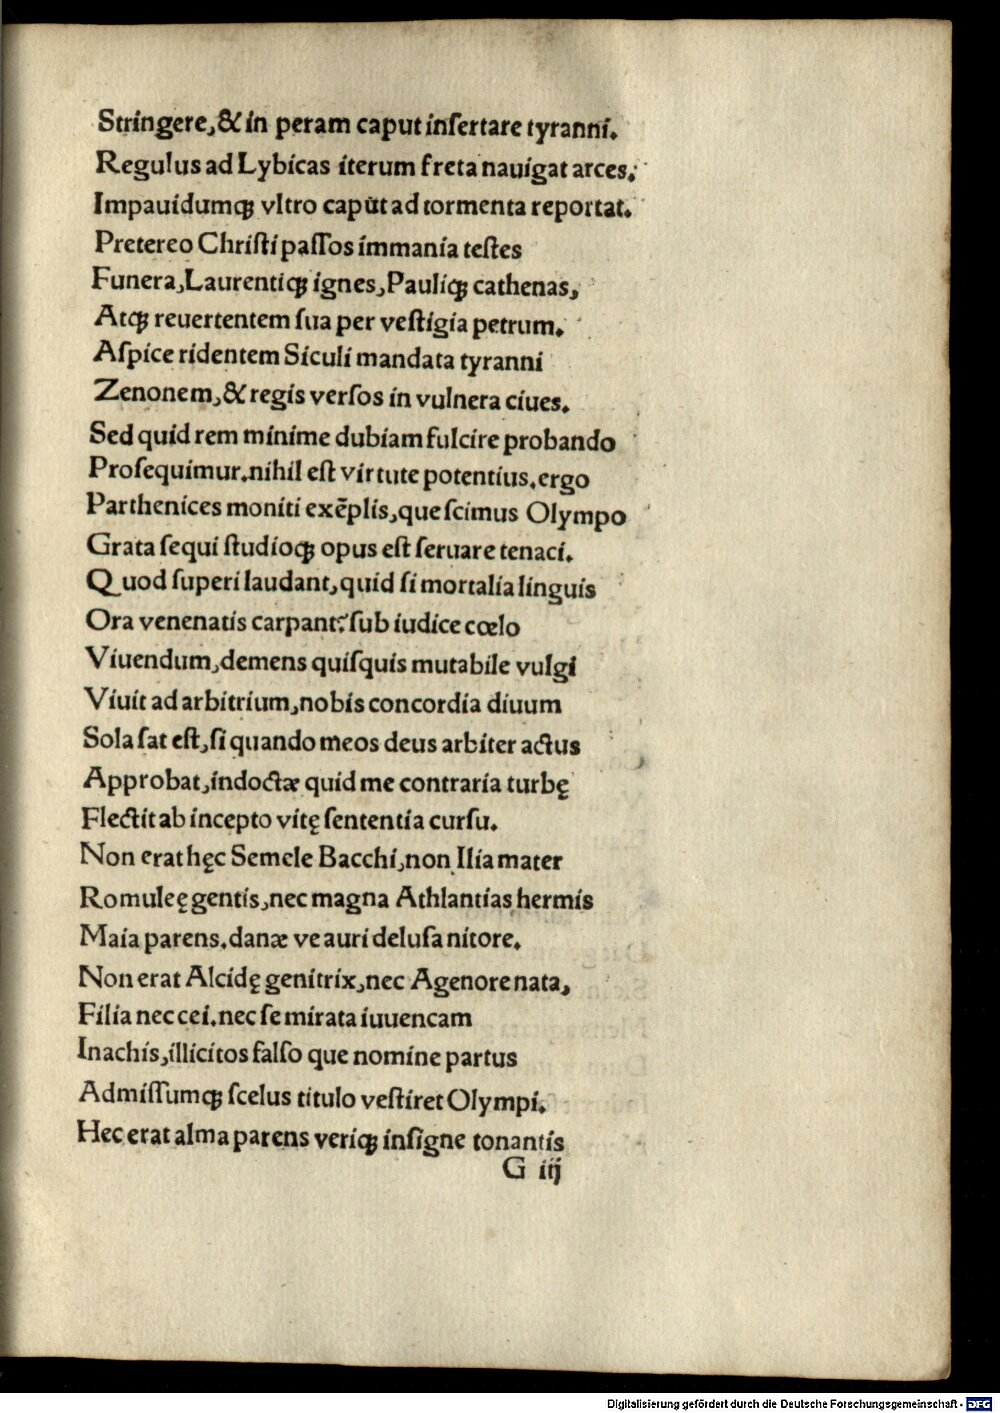 Stringere,& in peram caput inſertare tyranni.
Regulus ad Lybicas iterum freta nauigat arces.
Impauidumqꝫ vltro capūt ad tormenta reportat.
Pretereo Chriſti paſſos immania teſtes
Funera,Laurentiqꝫ ignes,Pauliqꝫ cathenas,
Atqꝫ reuertentem ſua per veſtigia petrum.
Aſpice ridentem Siculi mandata tyranni
Zenonem,& regis verſos in vulnera ciues.
Sed quid rem minime dubiam fulcire probando
Proſequimur.nihil eſt virtute potentius.ergo
Parthenices moniti exēplis,que ſcimus Olympo
Grata ſequi ſtudioqꝫ opus eſt ſeruare tenaci.
Quod ſuperi laudant,quid ſi mortalia linguis
Ora venenatis carpant?ſub iudice cœlo
Viuendum,demens quiſquis mutabile vulgi
Viuit ad arbitrium,nobis concordia diuum
Sola ſat eſt,ſi quando meos deus arbiter actus
Approbat,indoctæ quid me contraria turbę
Flectit ab incepto vitę ſententia curſu.
Non erat hęc Semele Bacchi,non Ilia mater
Romuleę gentis,nec magna Athlantias hermis
Maia parens.danæ ve auri deluſa nitore.
Non erat Alcidę genitrix,nec Agenore nata,
Filia nec cei.nec ſe mirata iuuencam
Inachis,illicitos falſo que nomine partus
Admiſſumqꝫ ſcelus titulo veſtiret Olympi.
Hec erat alma parens veriqꝫ inſigne tonantis
G iij
Digitalisierung gefördert durch die Deutsche Forschungsgemeinschaft - DFG